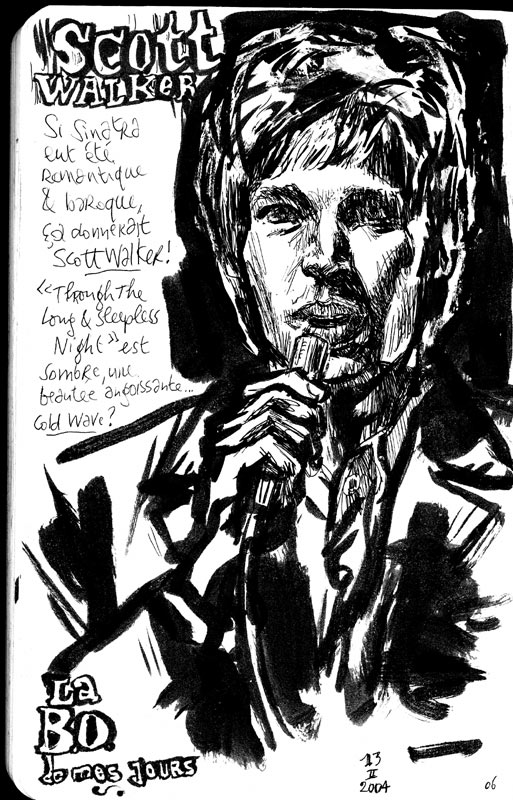 Scott
WALKER
Si Sinatra
eut été
romantique
& baroque,
ça donnerait
Scott Walker!
"Through The
Long & Sleepless
Night" est
sombre, une
beautee angoissante...
Cold Wave?
La
B.O.
de mes jours
13
II
2004
06